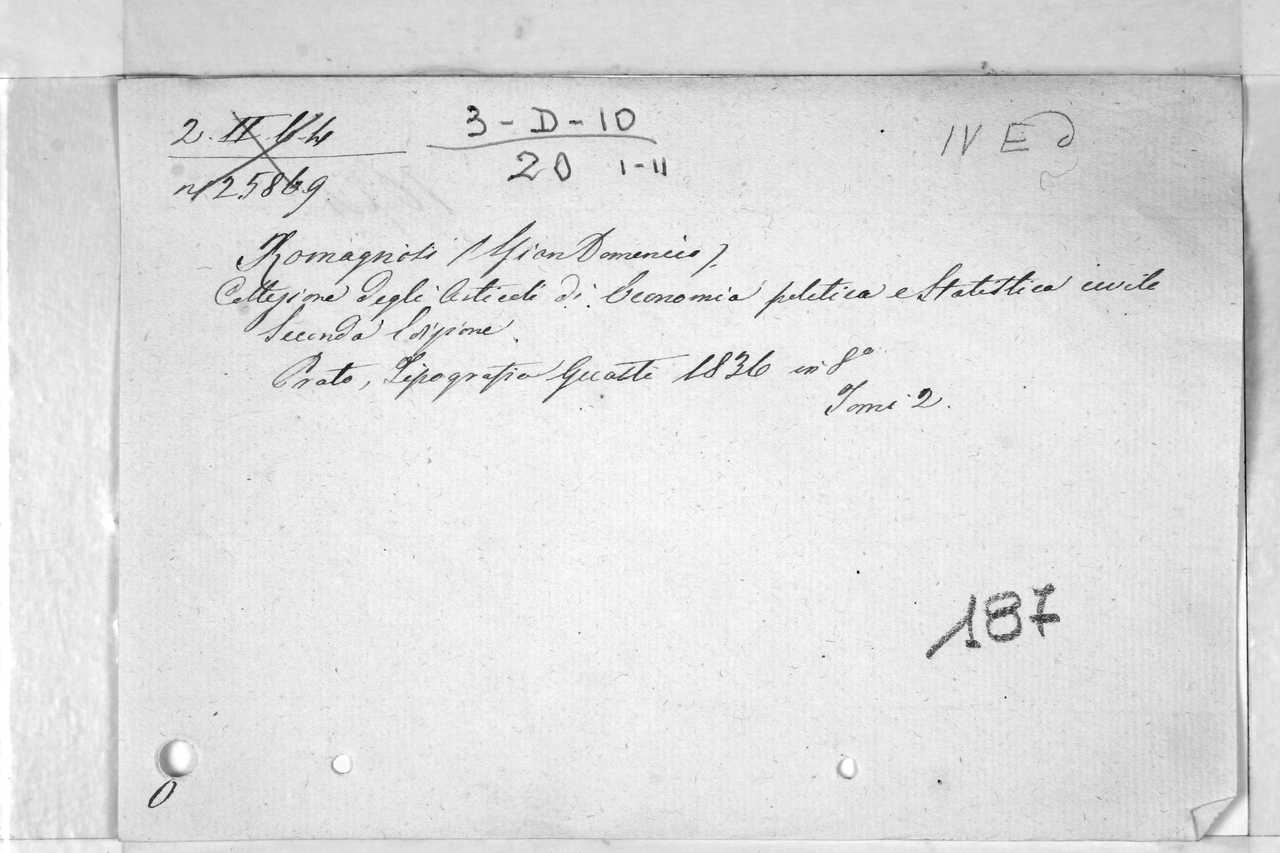 3-D-10
IV E
20 I-II
n° 25869
Romagnosi (Gian Domenico)
Collezione degli Articoli di Economia politica e Statistica civile
Seconda Edizione.
Prato, Tipografia Guasti 1836 in 8°
Tomi 2.
187
0